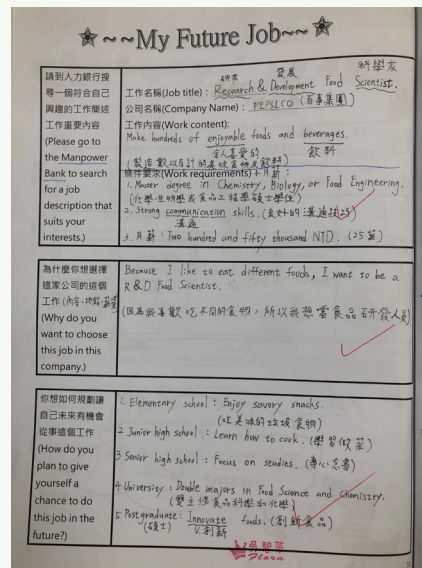 ~~My Future Job~~
請到人力銀行搜
尋一個符合自己
興趣的工作簡述
工作重要內容
(Please go to
the Manpower
Bank to search
for a job
description that
suits your
interests.)
研究 發展 科學家
工作名稱(Job title) : Research & Development Food Scientist.
公司名稱(Company Name) : PEPSICO (百事集團)
工作內容(Work content):
Make hundreds of enjoyable foods and beverages.
令人喜愛的 飲料
(製造數以百計的美味食物及飲料)
條件要求(Work requirements)+月薪:
1. Master degree in Chemistry, Biology, or Food Engineering.
(化學、生物學或食品工程學碩士學位)
2. Strong communication skills. (良好的溝通技巧)
溝通
3. 月薪: Two hundred and fifty thousand NTD. (25萬)
為什麼你想選擇
這家公司的這個
工作(內容、地點、薪資)
(Why do you
want to choose
this job in this
company.)
Because I like to eat different foods, I want to be a
R&D Food Scientist.
(因為我喜歡吃不同的食物,所以我想當食品研發人員)
你想如何規劃讓
自己未來有機會
從事這個工作
(How do you
plan to give
yourself a
chance to do
this job in the
future?)
1. Elementary school : Enjoy savory snacks.
(吃美味的垃圾食物)
2 Junior high school : Learn how to cook. (學習做菜)
3 Senior high school : Focus on studies. (專心念書)
4 University : Double majors in Food Science and Chemistry.
(雙主修食品科學和化學)
5 Postgraduate : Innovate foods. (創新食品)
(碩士) V. 創新
Flora